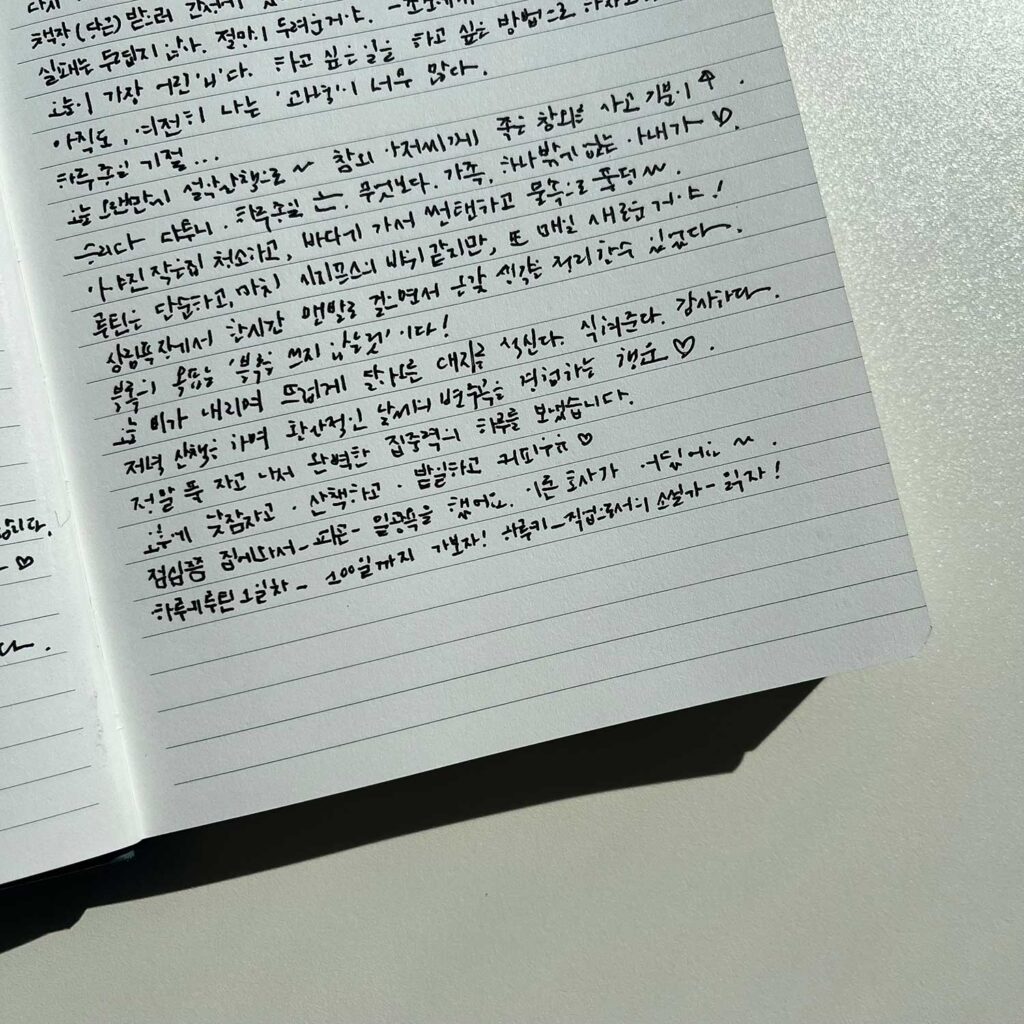 다시
책장(당근) 받으러 간성에
실패는 두렵지 않아. 절망이 두려운거야.
오늘이 가장 어린 '나'다. 하고 싶은일을 하고 싶은 방법으로 하자고
아직도, 여전히 나는 '과녁'이 너무 많다.
하루종일 기절...
오늘 오랜만에 설악산책으로~ 참외 아저씨께 죽은 참외를 사고 기분이 ↑.
승리다 다투니. 하루종일 는. 무엇보다. 가족, 하나밖에 없는 아내가 ♡.
아야진 작은집 청소하고, 바다가 가서 썬탠하고 물속으로 풍덩~.
루틴은 단순하고, 마치 시지프스의 바위같지만, 또 매일 새로운거야!
상림욕장에서 한시간 맨발로 걸으면서 온갖 생각을 정리할수 있었다.
블록의 목표는 '블록을 쓰지 않는것' 이다!
오늘 비가 내리며 뜨겁게 달아오른 대지를 적신다. 식혀준다. 감사하다.
저녁 산책을 하며 환상적인 날씨의 변주곡을 경험하는 행운 ♡.
정말 푹 자고 나서 완벽한 집중력의 하루를 보냈습니다.
오후에 낮잠자고. 산책하고. 밥일하고 커피수유 ♡
점심쯤 집에와서- 피곤- 일광욕을 했어요. 이른 효사가 어딨어요~.
하루에루틴 2일차- 100일까지 가보자! 하루키_직업으로서의 소설가- 읽자!
습니다.
♡
다.